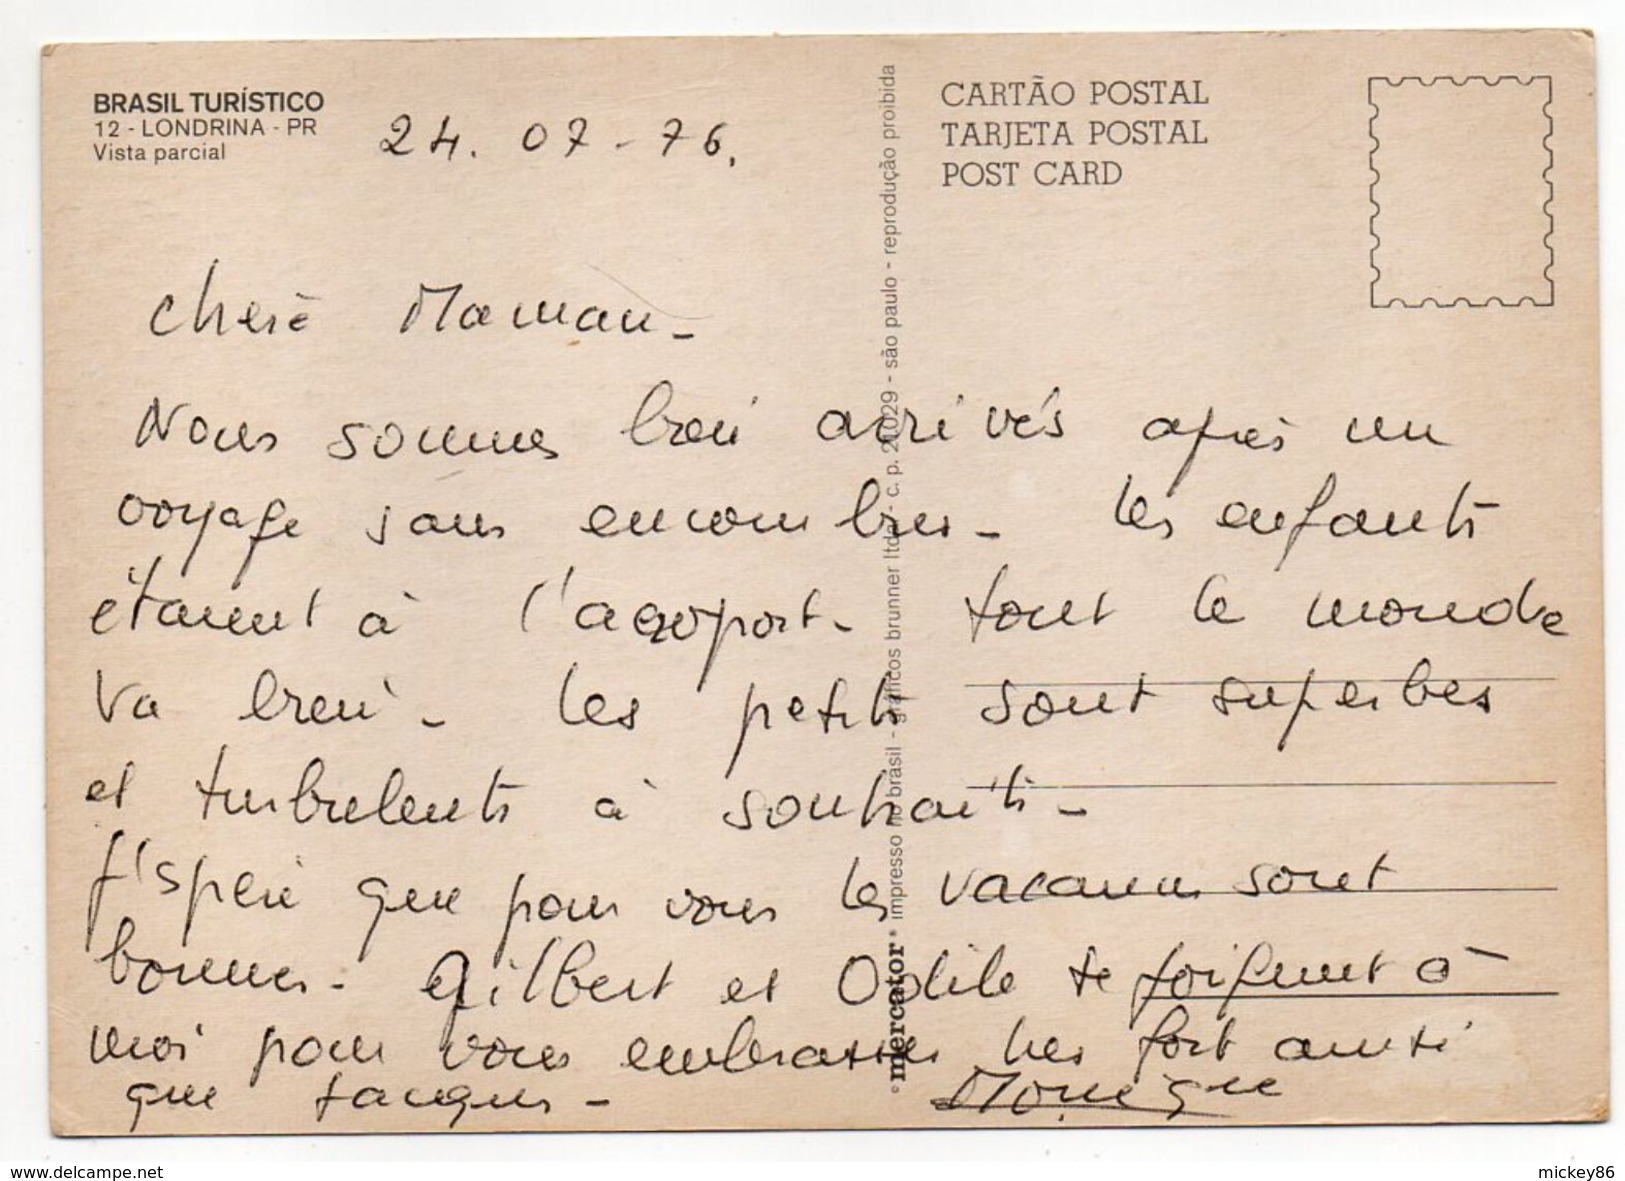 BRASIL TURÍSTICO
12 - LONDRINA - PR
Vista parcial
24. 07 - 76.
CARTÃO POSTAL
TARJETA POSTAL
POST CARD
Chère Maman -
Nous sommes bien arrivés après un
voyage sans encombres - les enfants
étaient à l'aéroport - tout le monde
va bien - les petits sont superbes
et turbulents à souhaits -
J'espère que pour vous les vacances sont
bonnes - Gilbert et Odile se joignent à
moi pour vous embrasser très fort ainsi
que Jacques - Monique
mercator impresso no brasil - gráficos brunner ltda - c. p. 21029 - são paulo - reprodução proibida
www.delcampe.net
mickey86